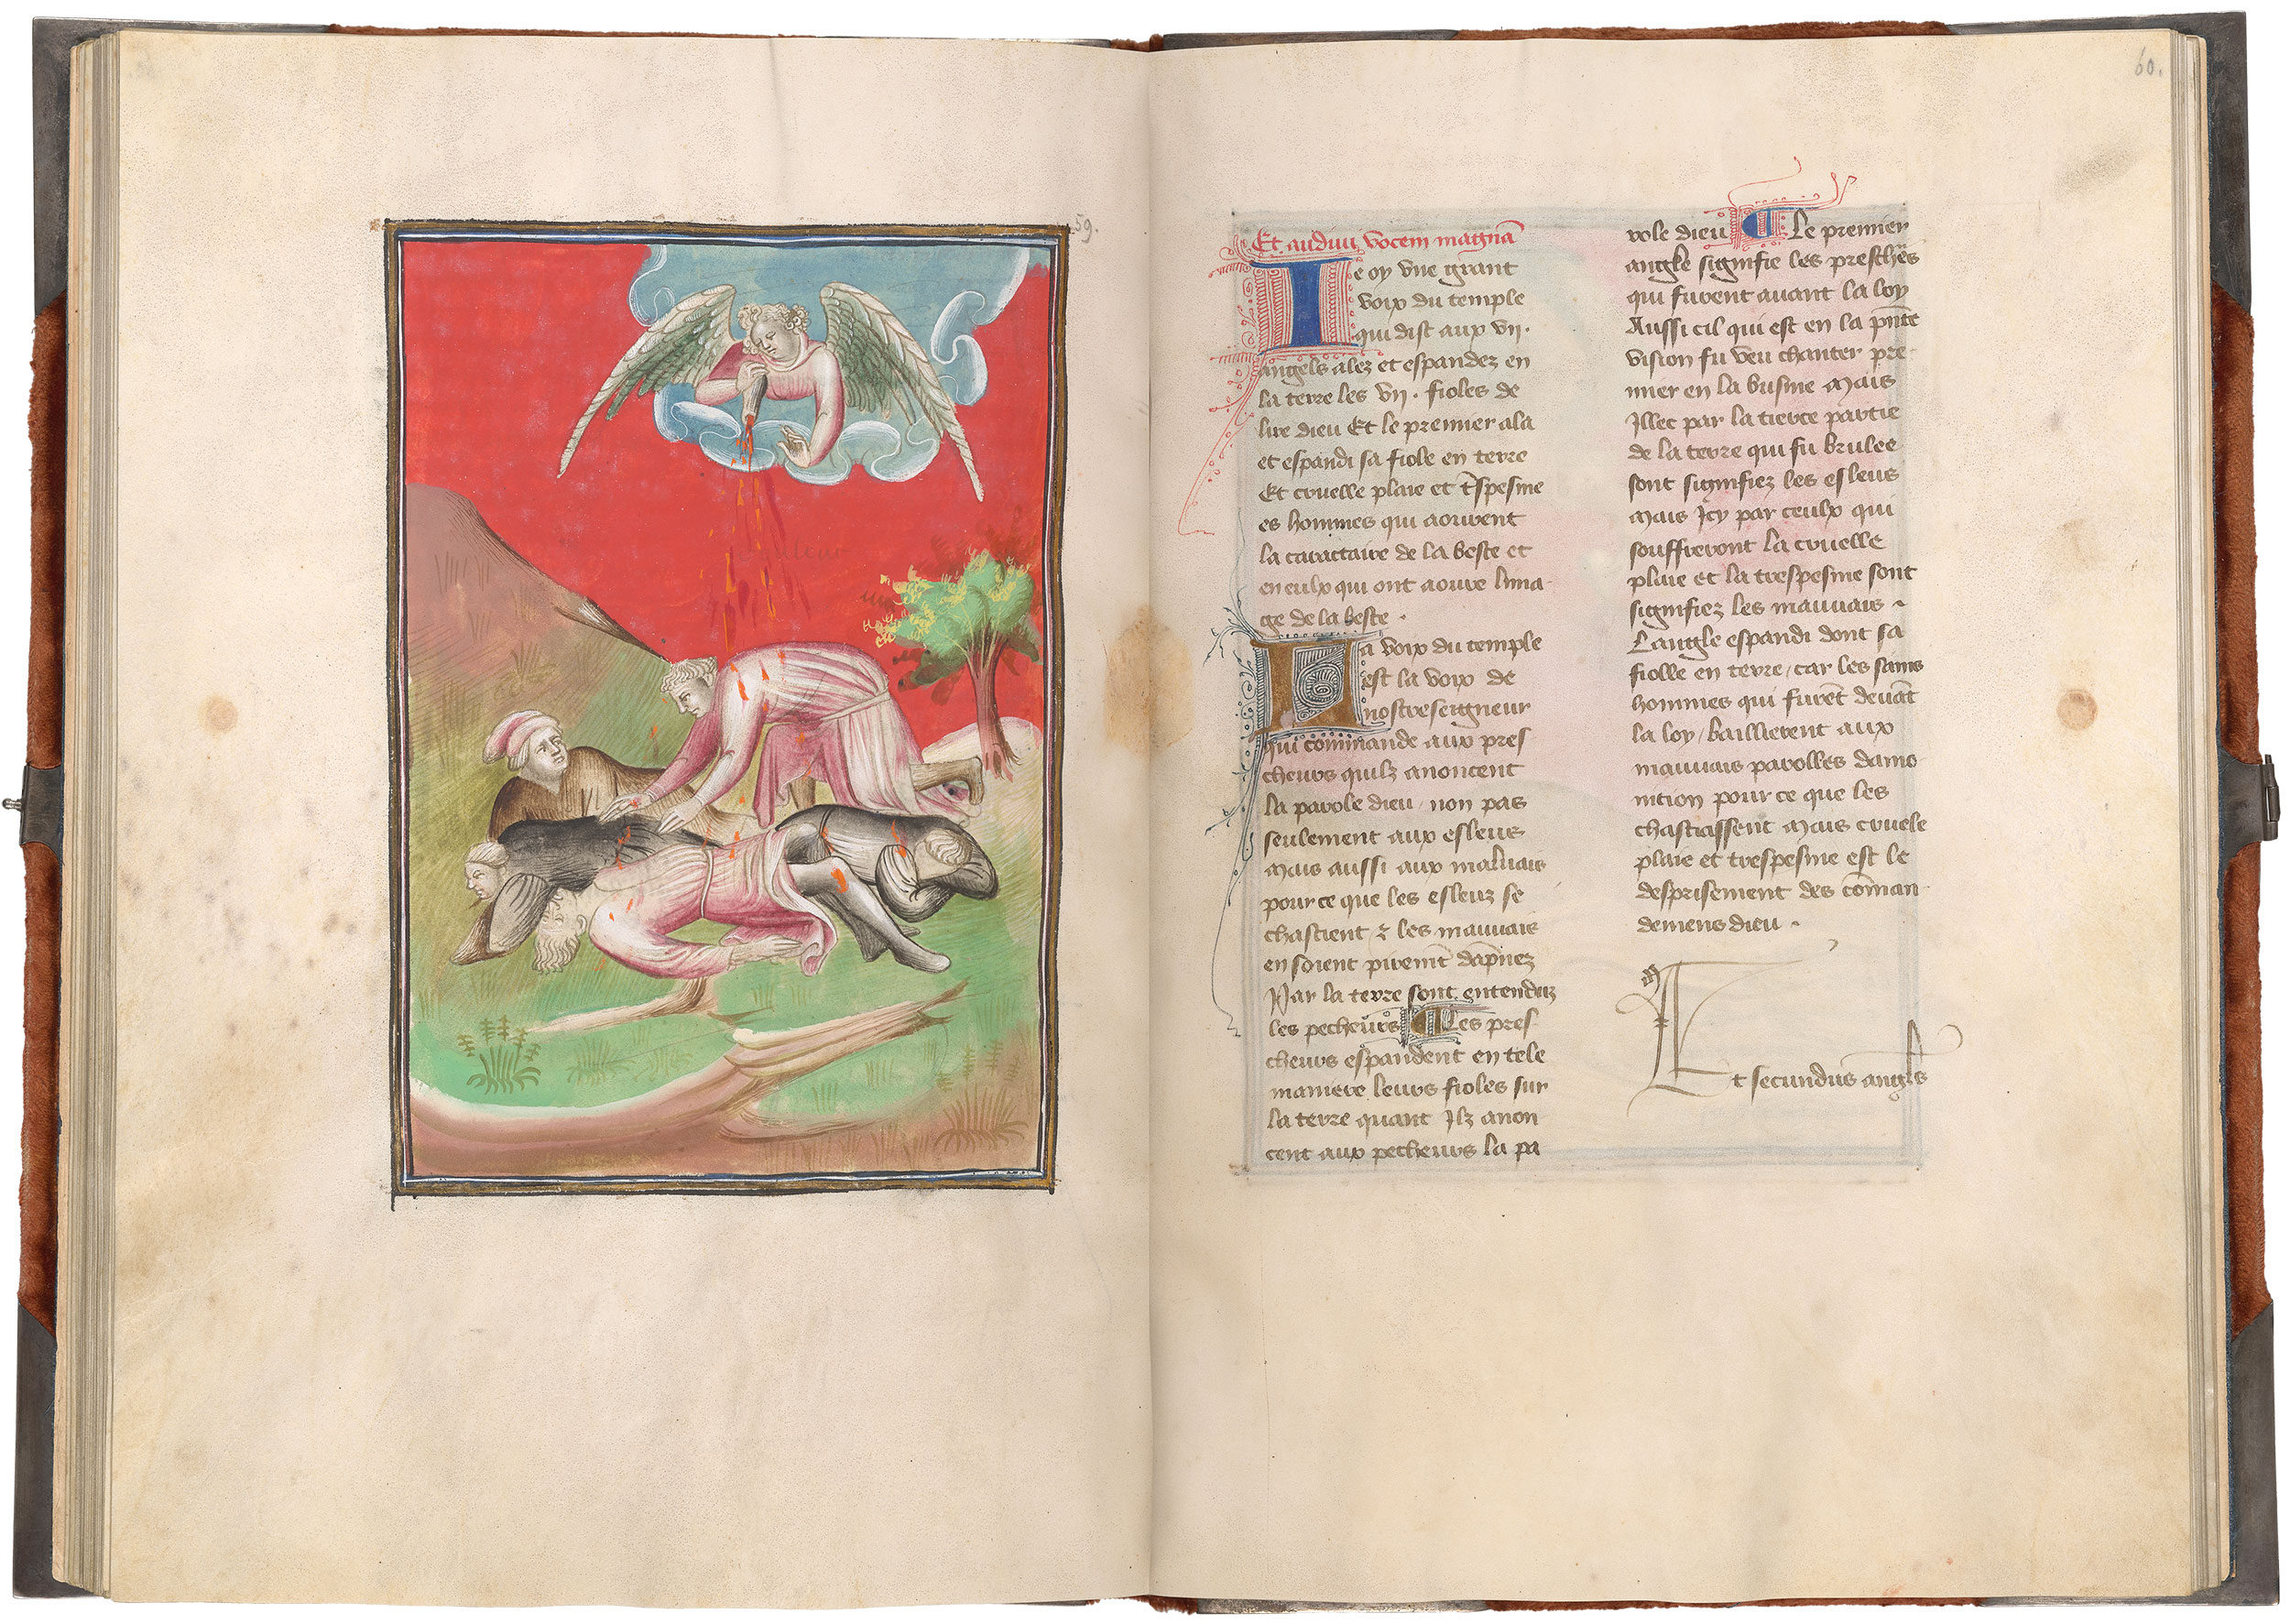 59.
60.
Et audiui vocem magnā
Ie oy vne grant
voix du temple
qui dist aux vij.
angels alez et espandez en
la terre les vij. fioles de
lire dieu Et le premier ala
et espandi sa fiole en terre
Et cruelle plaie et t̄spesme
es hommes qui aourent
la caractaire de la beste et
en eulx qui ont aoure lima
ge de la beste .
La voix du temple
est la voix de
nostre seigneur
qui commande aux pres
cheurs quilz anoncent
la parole dieu / non pas
seulement aux esleus
Mais aussi aux maluais
pour ce que les esleuz se
chastient ⁊ les mauuais
en soient
Par la terre sont entenduz
les pecheurs ¶ Les pres
cheurs espandent en tele
maniere leurs fioles sur
la terre quant Ilz anon
cent aux pecheurs la pa
role dieu ¶ Le premier
angle signifie les
qui furent auant la loy
Aussi cil qui est en la pn̄te
vision fu veu chanter pre
mier en la busine Mais
Illec par la tierce partie
de la terre qui fu brulee
sont signifiez les esleus
Mais Icy par ceulx qui
souffreront la cruelle
plaie et la trespesme sont
signifiez les mauuais ~
Langle espandi dont sa
fiolle en terre / car les sains
hommes qui furēt deuāt
la loy / baillierent aux
mauuais parolles damo
nition pour ce que les
chastiassent Mais cruele
plaie et trespesme est le
desprisement des cōman
demens dieu .
Et secundus angls